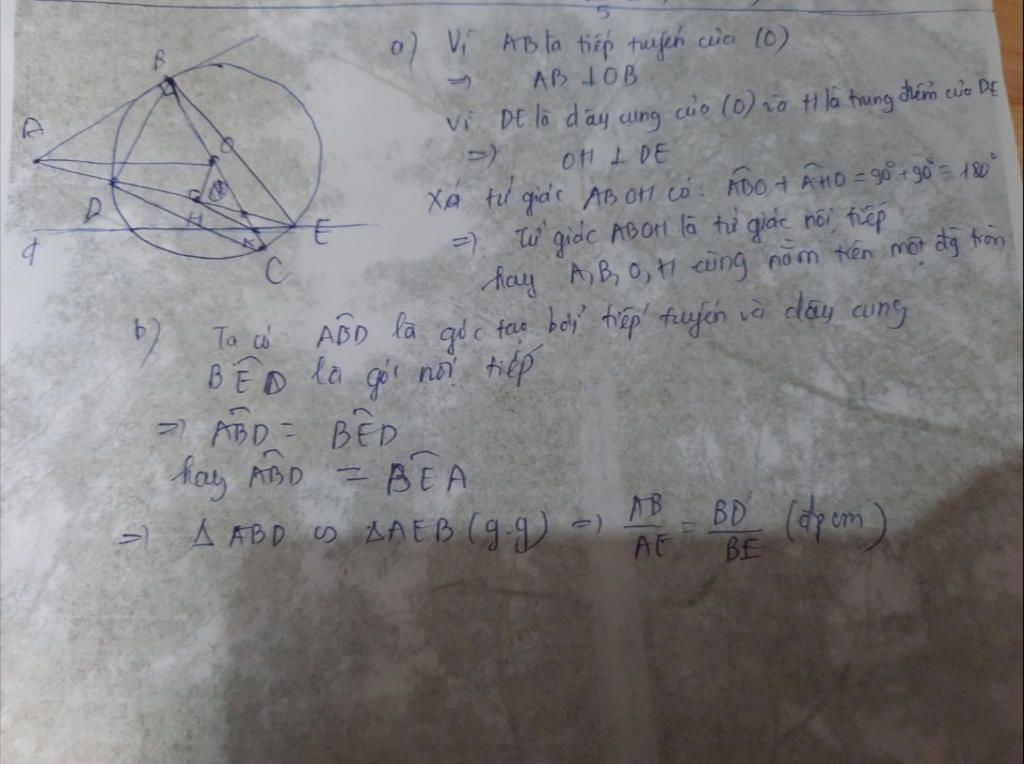 5
a) Vì AB là tiếp tuyến của (O)
=> AB ⊥ OB
Vì DE là dây cung của (O) và H là trung điểm của DE
=> OH ⊥ DE
Xét tứ giác ABOH có: ABO + AHO = 90° + 90° = 180°
=> Tứ giác ABOH là tứ giác nội tiếp
hay A, B, O, H cùng nằm trên một đg tròn
B
A
O
D
H
K
E
d
C
b) Ta có ABD là góc tạo bởi tiếp tuyến và dây cung
BED là góc nội tiếp
=> ABD = BED
hay ABD = BEA
=> Δ ABD ∽ ΔAEB (g.g) => AB/AE = BD/BE (đpcm)